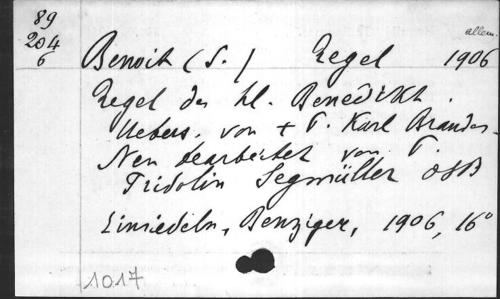 89
204
6
allem.
Benoit (S.) Regel 1906
Regel des hl. Benedikt.
Uebers. von + P. Karl Brandes.
Neu bearbeitet von P.
Fridolin Segmüller OSB
Einsiedeln, Benziger, 1906, 16°
1017